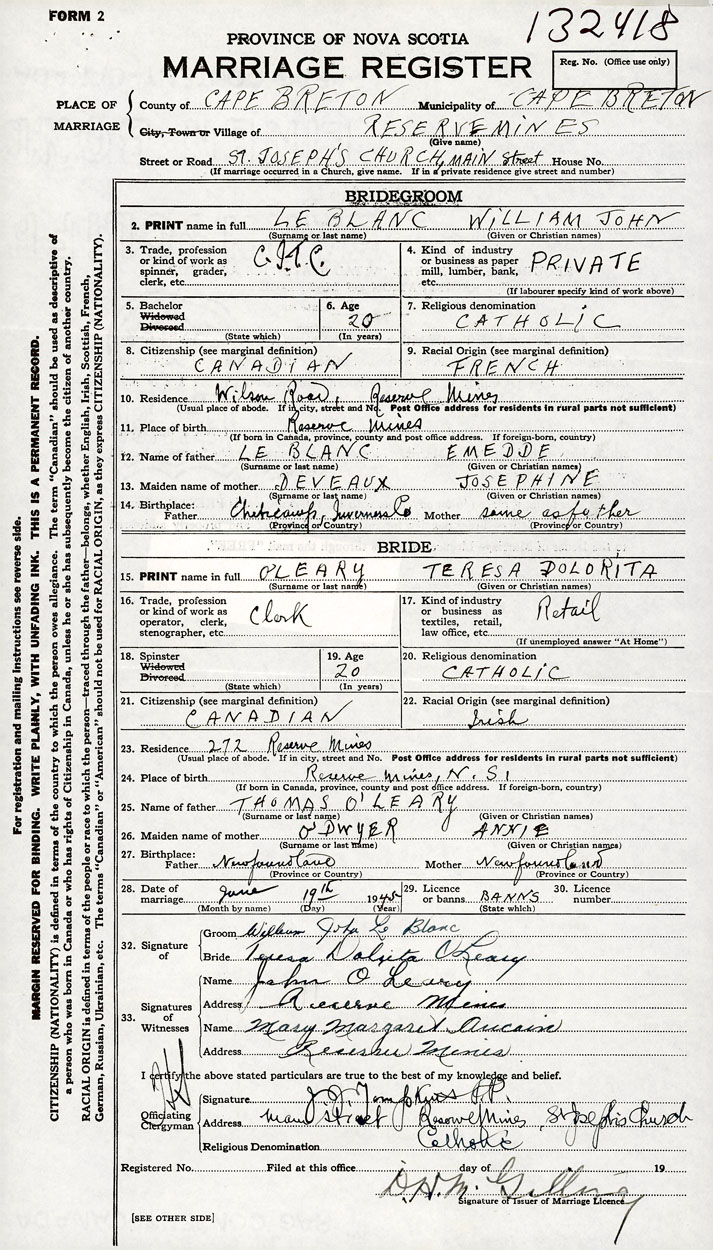 FORM 2
132418
PROVINCE OF NOVA SCOTIA
MARRIAGE REGISTER
Reg. No. (Office use only)
PLACE OF MARRIAGE
County of CAPE BRETON Municipality of CAPE BRETON
City, Town or Village of RESERVE MINES
(Give name)
Street or Road ST. JOSEPH'S CHURCH, MAIN Street House No.
(If marriage occurred in a Church, give name. If in a private residence give street and number)
BRIDEGROOM
2. PRINT name in full LE BLANC WILLIAM JOHN
(Surname or last name) (Given or Christian names)
3. Trade, profession or kind of work as spinner, grader, clerk, etc.
4. Kind of industry or business as paper mill, lumber, bank, etc. PRIVATE
(If labourer specify kind of work above)
5. Bachelor Widowed Divorced
(State which)
6. Age 20
(In years)
7. Religious denomination CATHOLIC
8. Citizenship (see marginal definition) CANADIAN
9. Racial Origin (see marginal definition) FRENCH
10. Residence Wilson Road, Reserve Mines
(Usual place of abode. If in city, street and No. Post Office address for residents in rural parts not sufficient)
11. Place of birth Reserve Mines
(If born in Canada, province, county and post office address. If foreign-born, country)
12. Name of father LE BLANC EMEDDE
(Surname or last name) (Given or Christian names)
13. Maiden name of mother DEVEAUX JOSEPHINE
(Surname or last name) (Given or Christian names)
14. Birthplace: Father Inverness Co Mother same as father
(Province or Country) (Province or Country)
BRIDE
15. PRINT name in full O'LEARY TERESA DOLORITA
(Surname or last name) (Given or Christian names)
16. Trade, profession or kind of work as operator, clerk, stenographer, etc. Clerk
17. Kind of industry or business as textiles, retail, law office, etc. Retail
(If unemployed answer "At Home")
18. Spinster Widowed Divorced
(State which)
19. Age 20
(In years)
20. Religious denomination CATHOLIC
21. Citizenship (see marginal definition) CANADIAN
22. Racial Origin (see marginal definition) Irish
23. Residence 272 Reserve Mines
(Usual place of abode. If in city, street and No. Post Office address for residents in rural parts not sufficient)
24. Place of birth Reserve Mines, N. S.
(If born in Canada, province, county and post office address. If foreign-born, country)
25. Name of father THOMAS O'LEARY
(Surname or last name) (Given or Christian names)
26. Maiden name of mother O'DWYER ANNIE
(Surname or last name) (Given or Christian names)
27. Birthplace: Father Newfoundland Mother Newfoundland
(Province or Country) (Province or Country)
28. Date of marriage June 19th 1945
(Month by name) (Day) (Year)
29. Licence or banns BANNS
(State which)
30. Licence number
32. Signature of
Groom William John Le Blanc
Bride Teresa Dolorita O'Leary
33. Signatures of Witnesses
Name John O Leary
Address Reserve Mines
Name Mary Margaret Aucoin
Address Reserve Mines
I certify the above stated particulars are true to the best of my knowledge and belief.
Officiating Clergyman
Signature J. J. Tompkins P.P.
Address Main Street Reserve Mines, St Joseph's Church
Religious Denomination Catholic
Registered No. Filed at this office day of 19
Signature of Issuer of Marriage Licence
[SEE OTHER SIDE]
For registration and mailing instructions see reverse side.
MARGIN RESERVED FOR BINDING. WRITE PLAINLY, WITH UNFADING INK. THIS IS A PERMANENT RECORD.
CITIZENSHIP (NATIONALITY) is defined in terms of the country to which the person owes allegiance. The term "Canadian" should be used as descriptive of
a person who was born in Canada or who has rights of Citizenship in Canada, unless he or she has subsequently become the citizen of another country.
RACIAL ORIGIN is defined in terms of the people or race to which the person—traced through the father—belongs, whether English, Irish, Scottish, French,
German, Russian, Ukrainian, etc. The terms "Canadian" or "American" should not be used for RACIAL ORIGIN, as they express CITIZENSHIP (NATIONALITY).